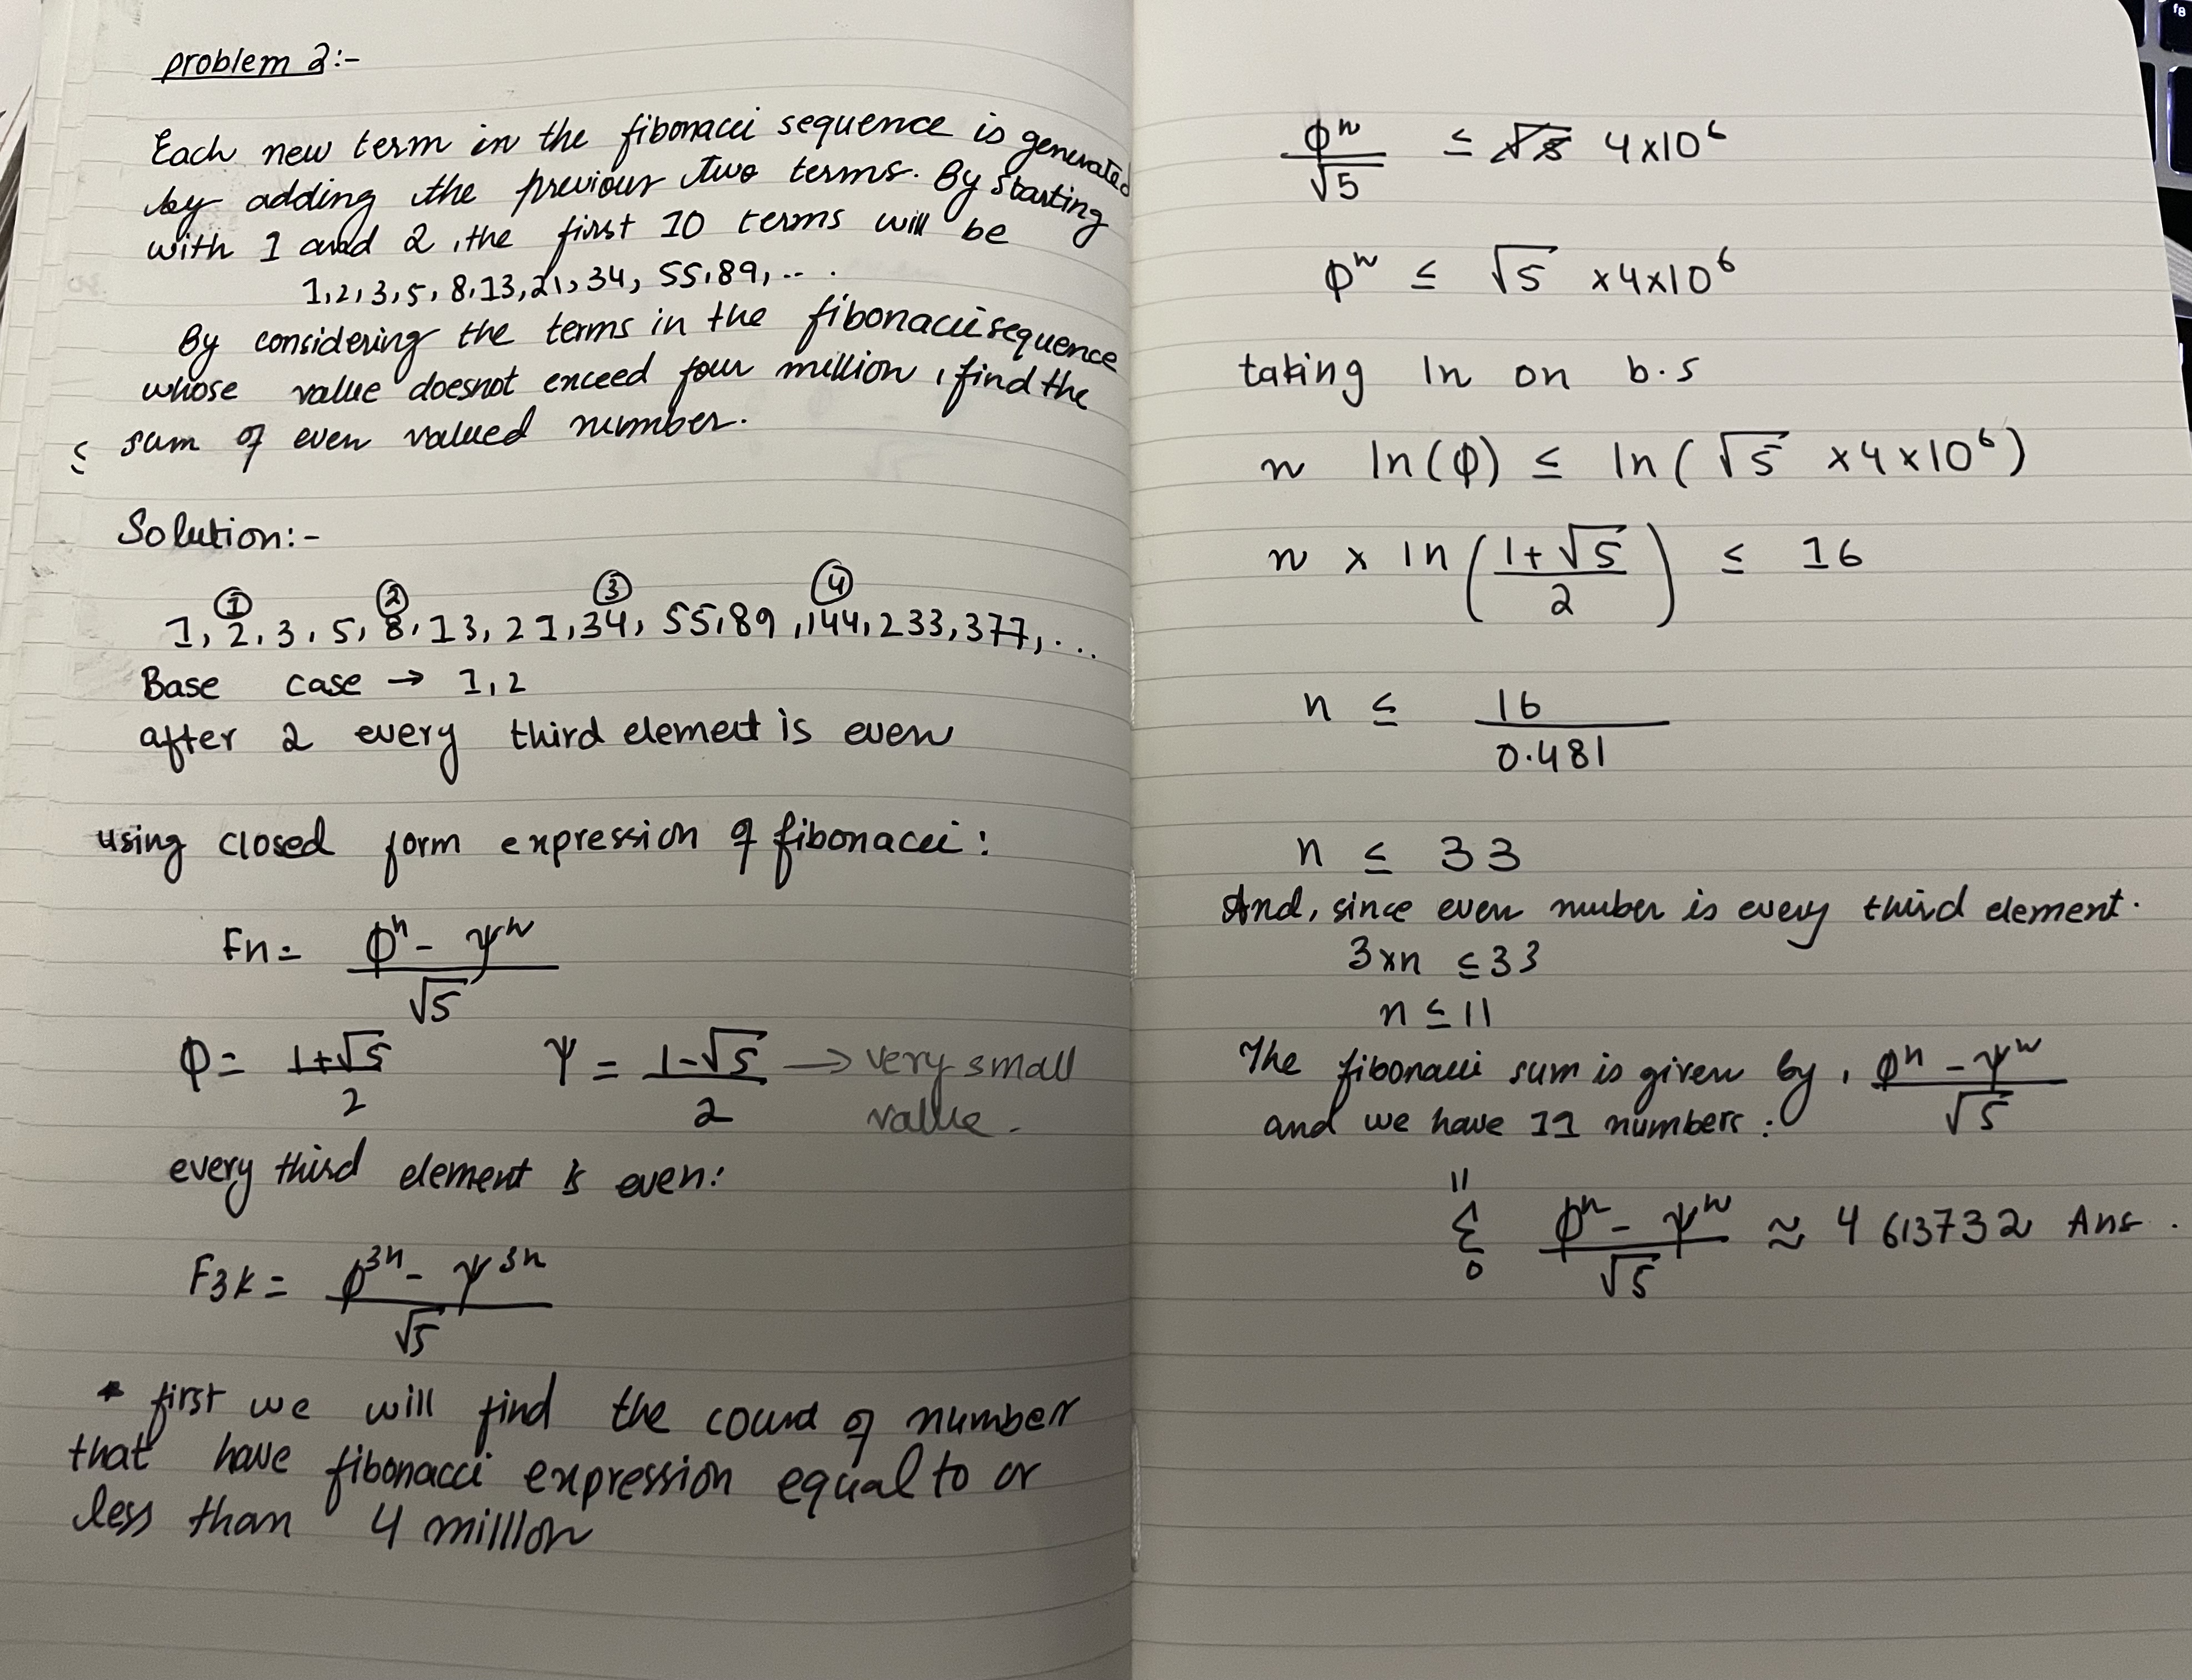 problem 2:-
Each new term in the fibonacci sequence is generated
by adding the previous two terms. By starting
with 1 and 2, the first 10 terms will be
1,2,3,5,8,13,21,34,55,89,...
By considering the terms in the fibonacci sequence
whose value doesnot exceed four million, find the
≤ sum of even valued number.
Solution:-
① ② ③ ④
1, 2, 3, 5, 8, 13, 21, 34, 55, 89, 144, 233, 377, ...
Base case → 1,2
after 2 every third element is even
using closed form expression of fibonacci:
Fn = (ϕⁿ - ψⁿ)/√5
ϕ = (1+√5)/2 ψ = (1-√5)/2 → very small
value.
every third element is even:
F3k = (ϕ³ⁿ - ψ³ⁿ)/√5
* first we will find the count of number
that have fibonacci expression equal to or
less than 4 million
ϕⁿ/√5 ≤ 4x10⁶
ϕⁿ ≤ √5 x4x10⁶
taking ln on b.s
n ln(ϕ) ≤ ln(√5 x4x10⁶)
n x ln((1+√5)/2) ≤ 16
n ≤ 16/0.481
n ≤ 33
And, since even number is every third element.
3xn ≤ 33
n ≤ 11
The fibonacci sum is given by, (ϕⁿ - ψⁿ)/√5
and we have 11 numbers:
11
Σ (ϕⁿ - ψⁿ)/√5 ≈ 4613732 Ans.
0
f8